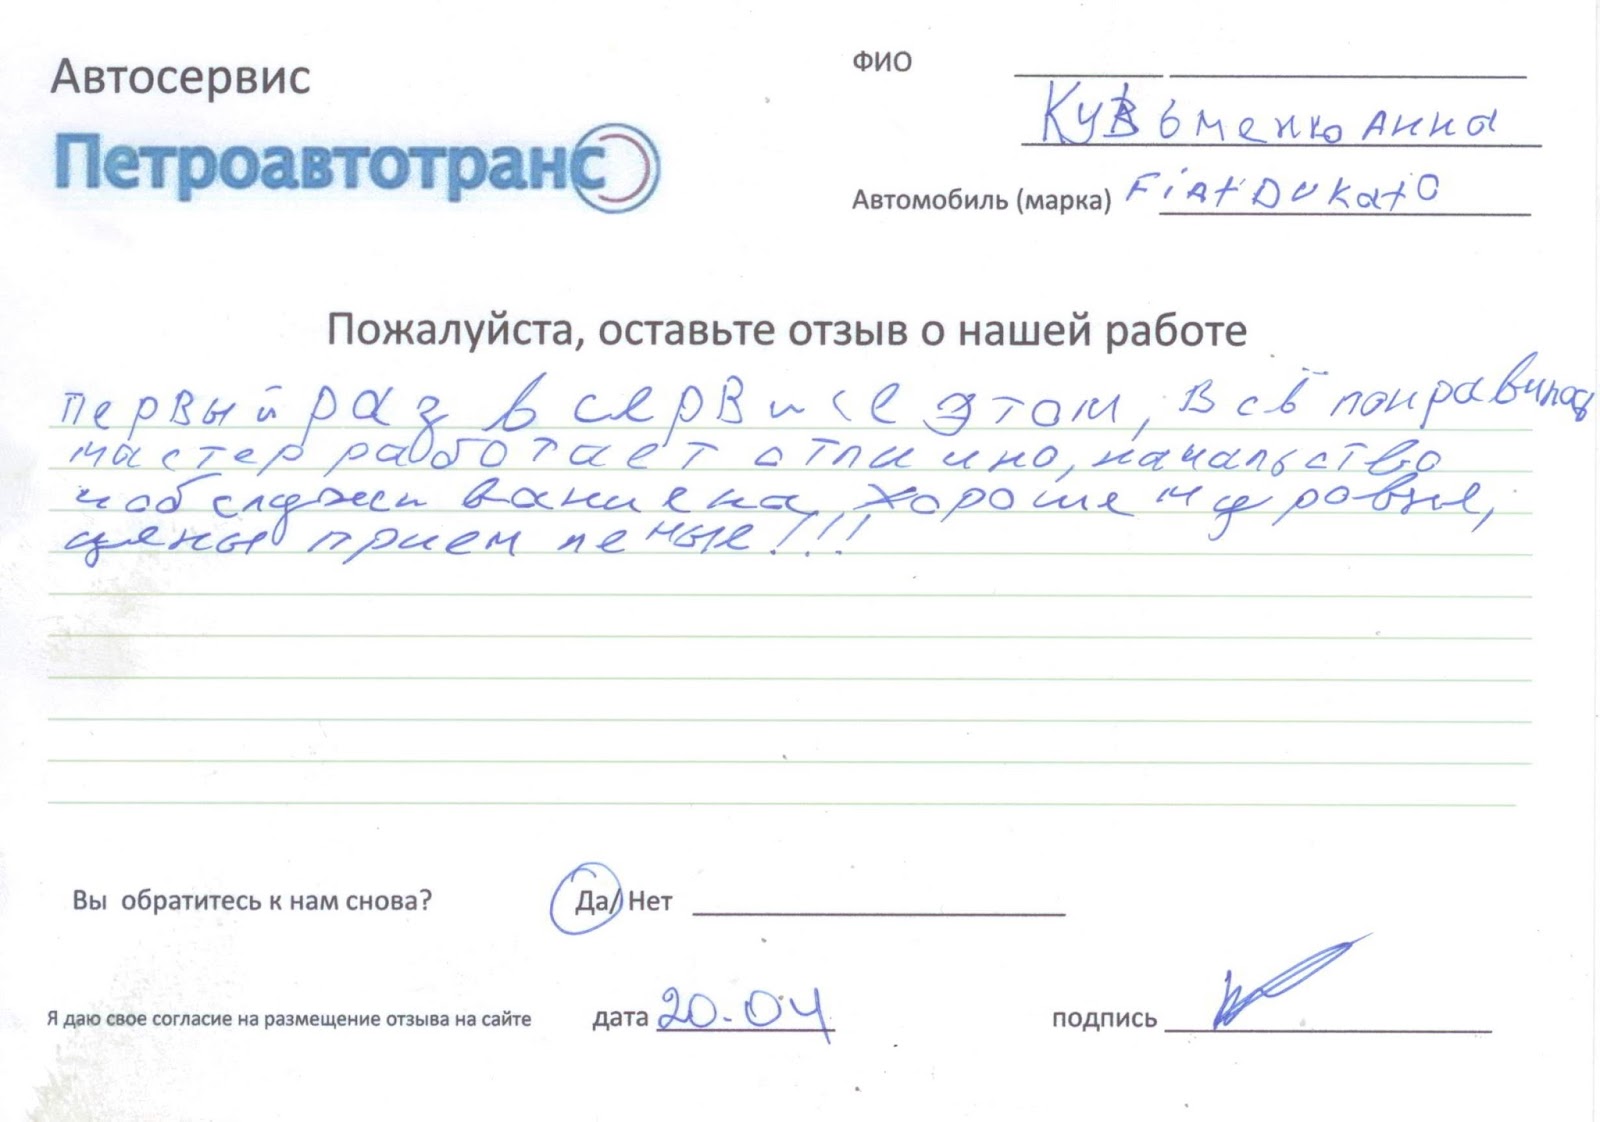 Автосервис
Петроавтотранс
ФИО
Кузьменко Анна
Автомобиль (марка) Fiat Dukato
Пожалуйста, оставьте отзыв о нашей работе
Первый раз в сервисе этом, Всё понравилось
мастер работает отлично, начальство
и обслуживание на хорошем уровне,
цены приемлемые!!!
Вы обратитесь к нам снова? Да/ Нет
Я даю свое согласие на размещение отзыва на сайте дата 20.04 подпись